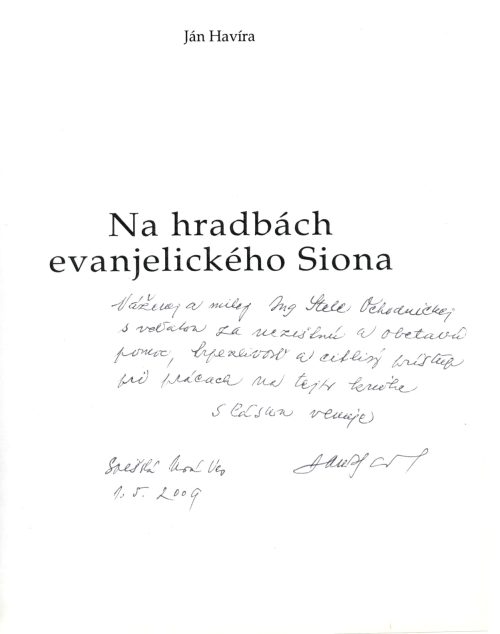 Ján Havíra
Na hradbách
evanjelického Siona
Váženej a milej Ing Stele Ochodnickej
s vďakou za nezištnú a obetavú
pomoc, trpezlivosť a citlivý prístup
pri prácach na tejto knihe
s láskou venuje
Spišská Nová Ves
1. 5. 2009